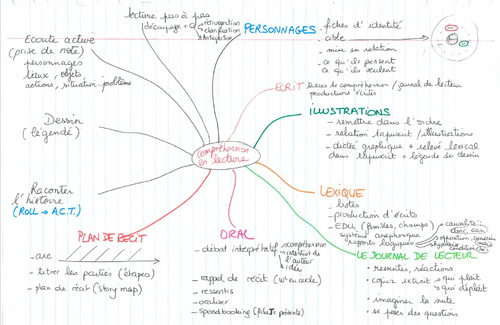 lecture pas à pas
découpage +
rétroaction
clarification
anticipation
PERSONNAGES
- fiches d'identité
- cible
- mise en relation
- ce qu'ils pensent
ce qu'ils veulent
Ecoute active
(prise de note)
personnages
lieux, objets
actions, situation-problème
ECRIT
traces de compréhension / journal de lecteur
productions écrites
ILLUSTRATIONS
- remettre dans l'ordre
- relation tapuscrit / illustrations
- dictée graphique + relevé lexical
dans tapuscrit + légende du dessin
Dessin
(légendé)
compréhension
en lecture
LEXIQUE
- listes
- production d'écrits
- EDL (familles, champs)
système anaphorique
rapports logiques
causalité
donc, car
opposition, concession
hypothèse
condition
Raconter
l'histoire
(ROLL → A.C.T.)
PLAN DE RECIT
- axe
- titrer les parties (étapes)
- plan de récit (story map)
ORAL
- débat interprétatif
compréhension
intention de
l'auteur
idées
- rappel de récit
- ressentis
- oraliser
- speedbooking
LE JOURNAL DE LECTEUR
- ressentis, réactions
- copier extrait
qui plaît
qui déplaît
- imaginer la suite
- se poser des questions